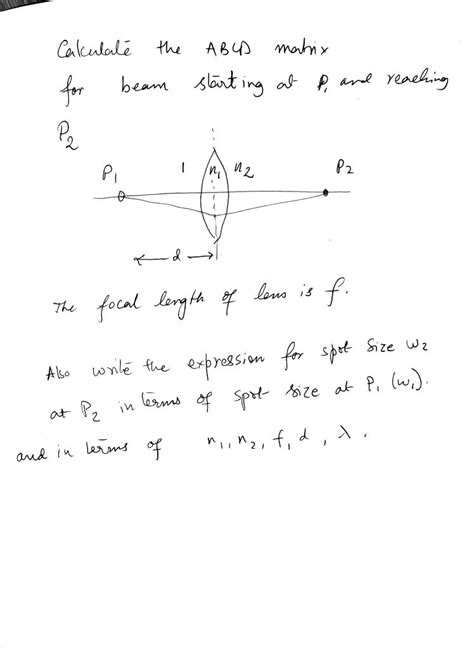 Calculate the ABCD matrix
for beam starting at P1 and reaching
P2
P1 1 n1 n2 P2
d
The focal length of lens is f.
Also write the expression for spot size w2
at P2 in terms of spot size at P1 (w1).
and in terms of n1, n2, f, d, λ.